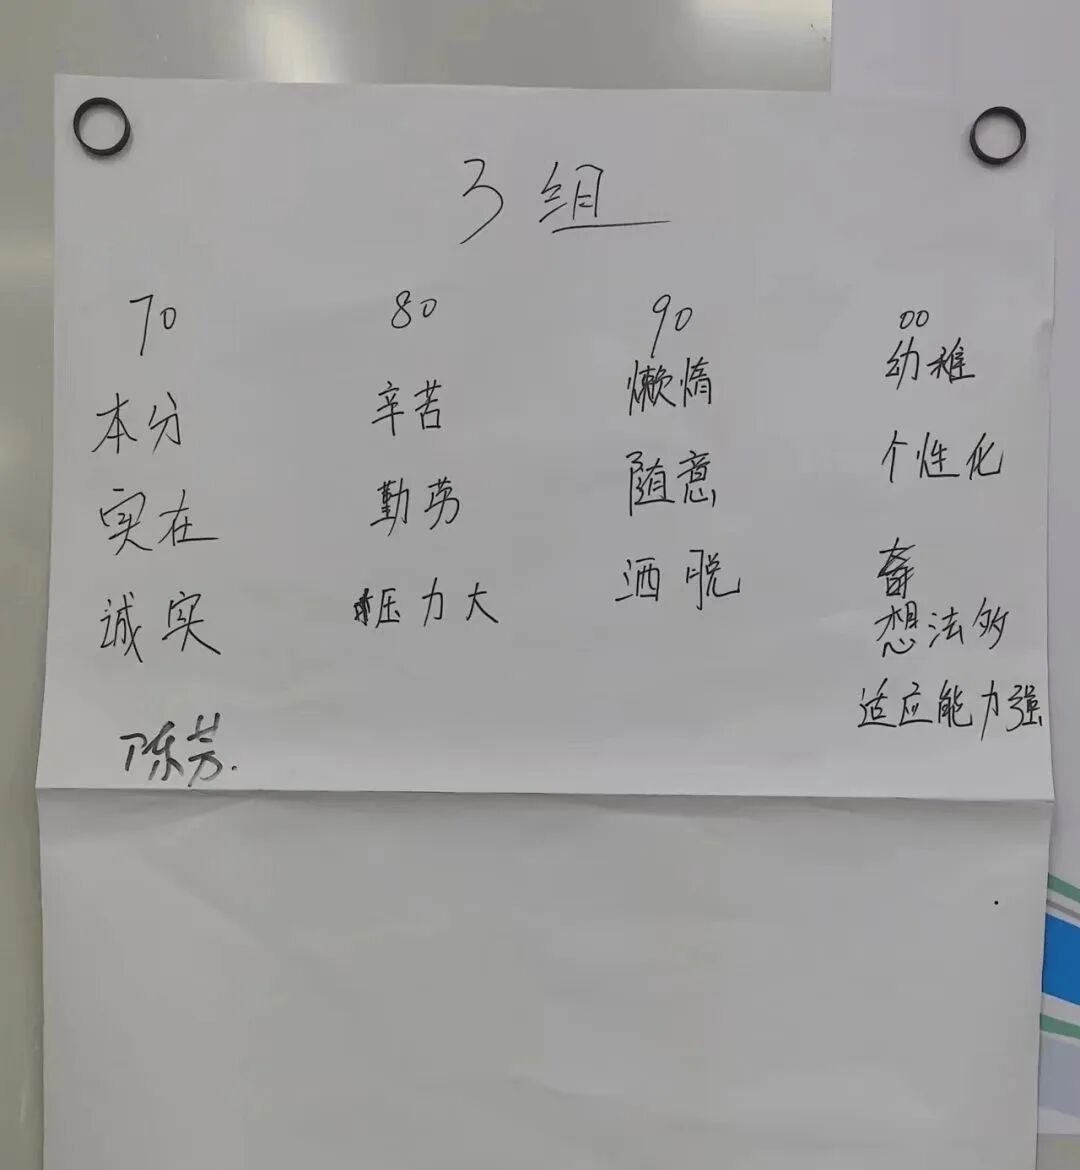 3组
70 80 90 00
本分 辛苦 懒惰 幼稚
实在 勤劳 随意 个性化
诚实 压力大 洒脱
想法多
适应能力强
陈芳.